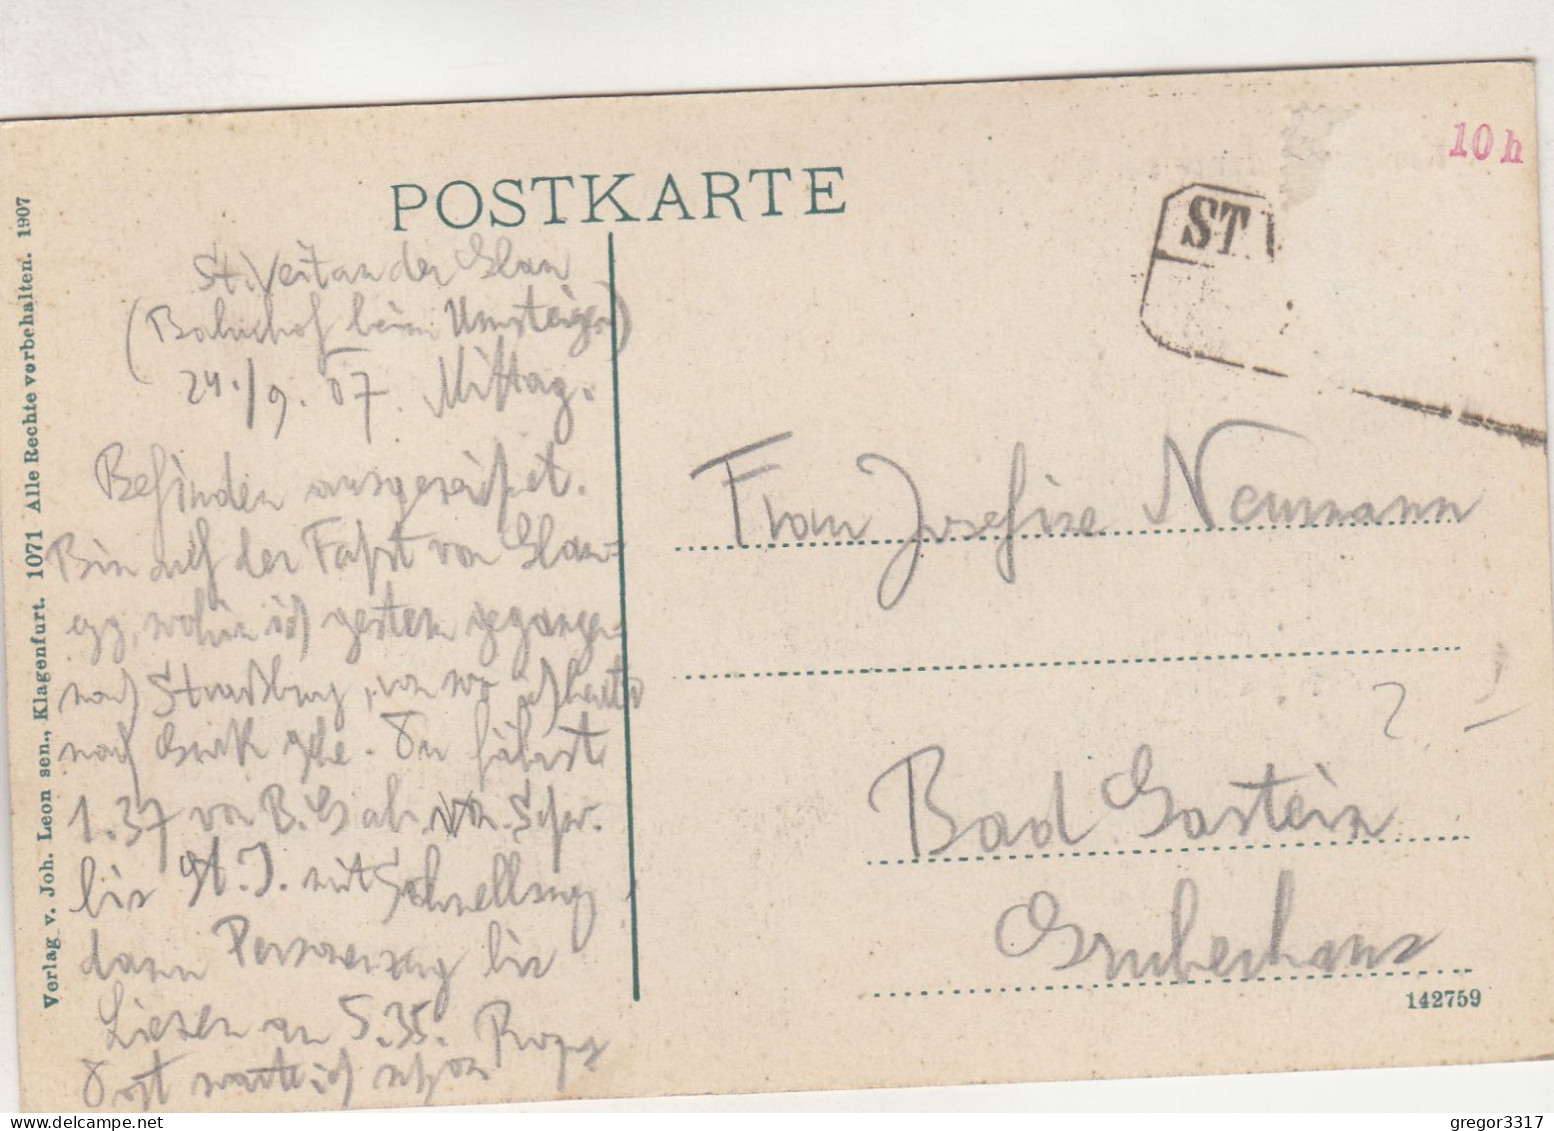 POSTKARTE
10 h
ST.
St. Veit an der Glan
(Bahnhof beim Umsteigen)
24./9. 07. Mittag.
Befinden ausgezeichnet.
Bin auf der Fahrt von Glan-
egg, wohin ich gestern gegangen
nach Straßburg, von wo ich heute
nach Gurk gehe. Du fährst
1.37 von B. Gast. von Schw.
bis St. J. mit Schnellzug
dann Personenzug bis
Liezen an 5.35.
Dort warte ich schon
Frau Josefine Neumann
Bad Gastein
Gruberhaus
142759
Verlag v. Joh. Leon sen., Klagenfurt. 1071 Alle Rechte vorbehalten. 1907
gregor3317